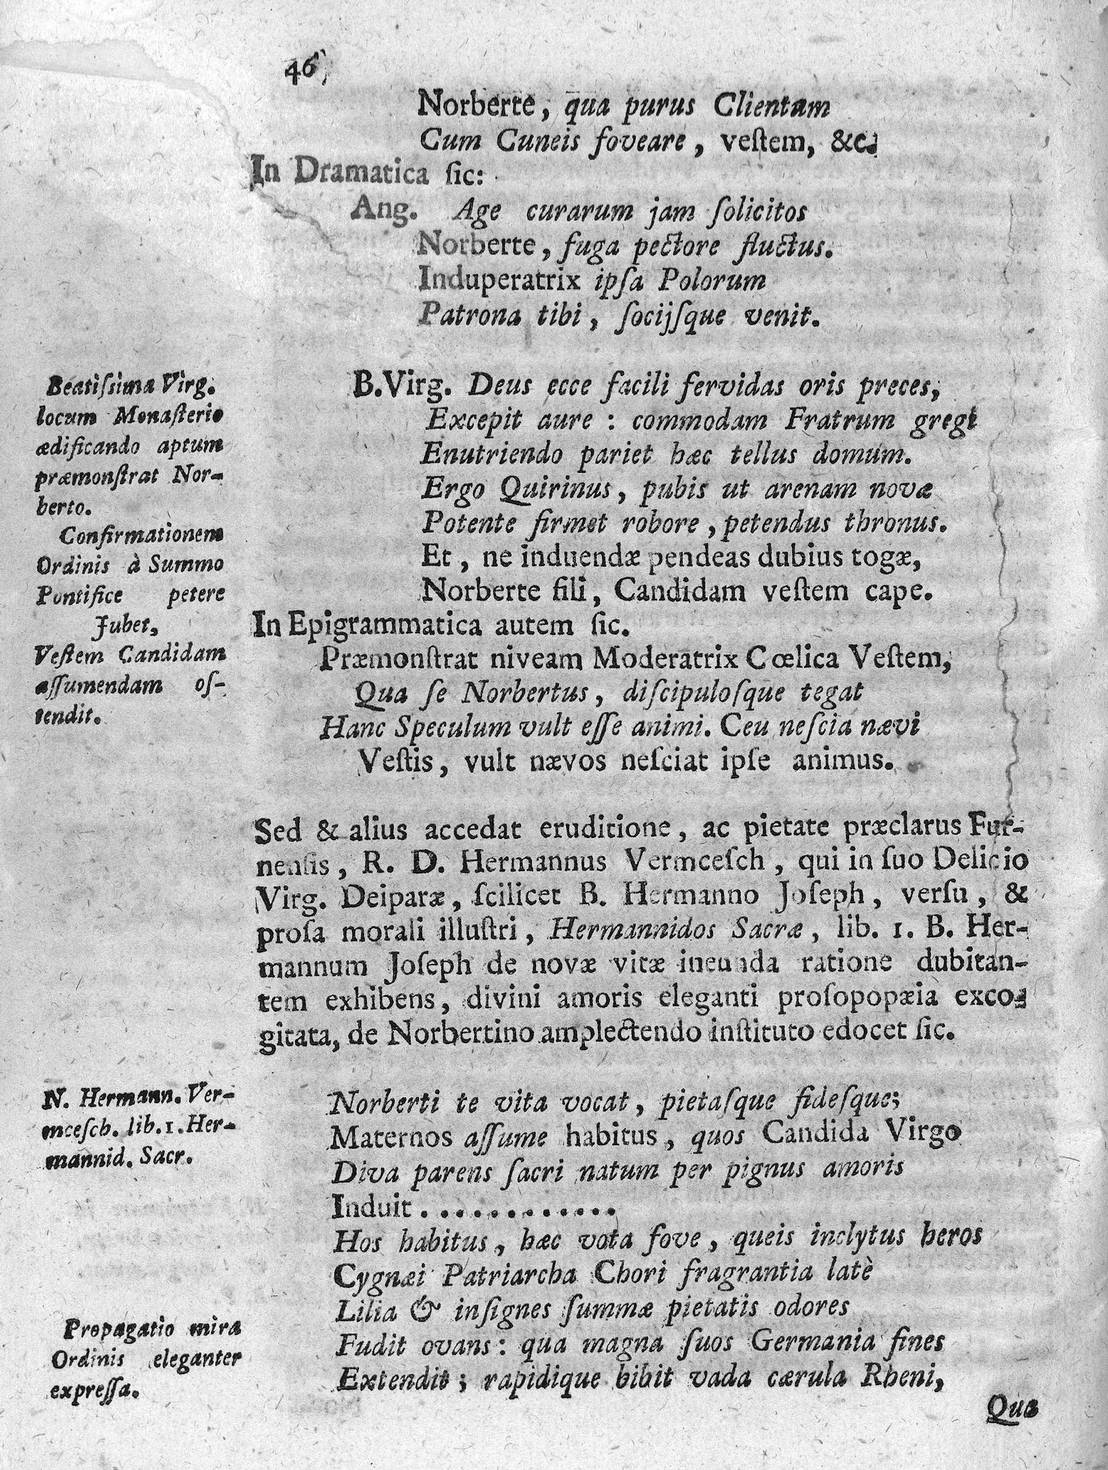 46
Norberte, qua purus Clientum
Cum Cuneis foveare, veſtem, &c.
In Dramatica ſic:
Ang. Age curarum jam ſolicitos
Norberte, fuga pectore fluctus.
Induperatrix ipſa Polorum
Patrona tibi, ſocijſque venit.
Beatiſsima Virg.
locum Monaſterio
ædificando aptum
præmonſtrat Nor-
berto.
Confirmationem
Ordinis à Summo
Pontifice petere
Jubet,
Veſtem Candidam
aſſumendam oſ-
tendit.
B.Virg. Deus ecce facili fervidas oris preces,
Excepit aure : commodam Fratrum gregi
Enutriendo pariet hæc tellus domum.
Ergo Quirinus, pubis ut arenam novæ
Potente firmet robore, petendus thronus.
Et, ne induendæ pendeas dubius togæ,
Norberte fili, Candidam veſtem cape.
In Epigrammatica autem ſic.
Præmonſtrat niveam Moderatrix Cœlica Veſtem,
Qua ſe Norbertus, diſcipuloſque tegat
Hanc Speculum vult eſſe animi. Ceu neſcia nævi
Veſtis, vult nævos neſciat ipſe animus.
Sed & alius accedat eruditione, ac pietate præclarus Fur-
nenſis, R. D. Hermannus Vermceſch, qui in ſuo Delicio
Virg. Deiparæ, ſcilicet B. Hermanno Joſeph, verſu, &
proſa morali illuſtri, Hermannidos Sacræ, lib. 1. B. Her-
mannum Joſeph de novæ vitæ ineunda ratione dubitan-
tem exhibens, divini amoris eleganti proſopopæia exco-
gitata, de Norbertino amplectendo inſtituto edocet ſic.
N. Hermann. Ver-
mceſch. lib.1. Her-
mannid. Sacr.
Norberti te vita vocat, pietaſque fideſque;
Maternos aſſume habitus, quos Candida Virgo
Diva parens ſacri natum per pignus amoris
Induit . . . . . . . . . . . .
Hos habitus, hæc vota fove, queis inclytus heros
Cygnæi Patriarcha Chori fragrantia latè
Lilia & inſignes ſummæ pietatis odores
Fudit ovans : qua magna ſuos Germania fines
Extendit ; rapidique bibit vada cærula Rheni,
Propagatio mira
Ordinis eleganter
expreſſa.
Qua